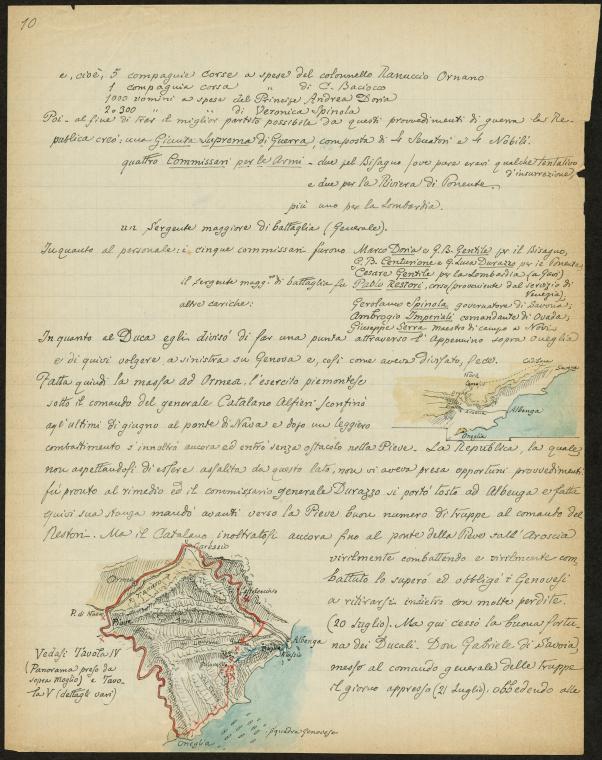 10
e, cioè, 5 compagnie corse a spese del colonnello Ranuccio Ornano
1 compagnia corsa " di C. Baciocco
1000 uomini a spese del Principe Andrea Doria
2 o 300 " " di Veronica Spinola
Poi - al fine di trar il miglior partito possibile da questi provvedimenti di guerra la Re-
pubblica creò: una Giunta Suprema di Guerra, composta di 4 Senatori e 4 Nobili.
quattro Commissari per le Armi - due pel Bisagno (ove pare eravi qualche tentativo
d'insurrezione)
e due per la Riviera di Ponente
più uno per la Lombardia.
un Sergente maggiore di battaglia (Generale).
In quanto al personale: i cinque commissari furono Marco Doria e G.B. Gentile pr il Bisagno,
G. B. Centurione e G. Luca Durazzo pr il Ponente,
Cesare Gentile pr la Lombardia (a Gavi)
il sergente magg.e di battaglia fu Pablo Restori, corso, proveniente dal servizio di
Venezia;
altre cariche: Gerolamo Spinola governatore di Savona;
Ambrogio Imperiali comandante di Ovada;
Giuseppe Serra maestro di campo a Novi.
In quanto al Duca egli divisò di far una punta attraverso l'Appennino sopra Oneglia
e di quivi volgere, a sinistra su Genova e, così come aveva divisato, fece.
Fatta quindi la massa ad Ormea, l'esercito piemontese
sotto il comando del generale Catalano Alfieri sconfinò
agli ultimi di giugno al ponte di Nava e dopo un leggiero
combattimento s'innoltrò ancora ed entrò senza ostacolo nella Pieve. La Republica, la quale
non aspettandosi di essere assalita da questo lato, non vi aveva presa opportuni provvedimenti
fu pronto al rimedio ed il commissario generale Durazzo si portò tosto ad Albenga e fatta
quivi sua stanza mandò avanti verso la Pieve buon numero di truppe al comando del
Restori. Ma il Catalano inoltratosi ancora fino al ponte della Pieve sull'Aroscia
virilmente combattendo e virilmente com-
battuto lo superò ed obbligò i Genovesi
a ritirarsi indietro con molte perdite.
(20 luglio). Ma qui cessò la buona fortu-
na dei Ducali. Don Gabriele di Savoia,
messo al comando generale delle truppe
il giorno appresso (21 luglio), obbedendo alle
Savona
Albenga
Oneglia
Garessio
Ormea
Tanaro
P. di Nava
Pieve
Albenga
Oneglia
Squadra Genovese
Vedasi Tavola IV
(Panorama preso da
sopra Moglio) e Tavo-
la V (dettagli vari)